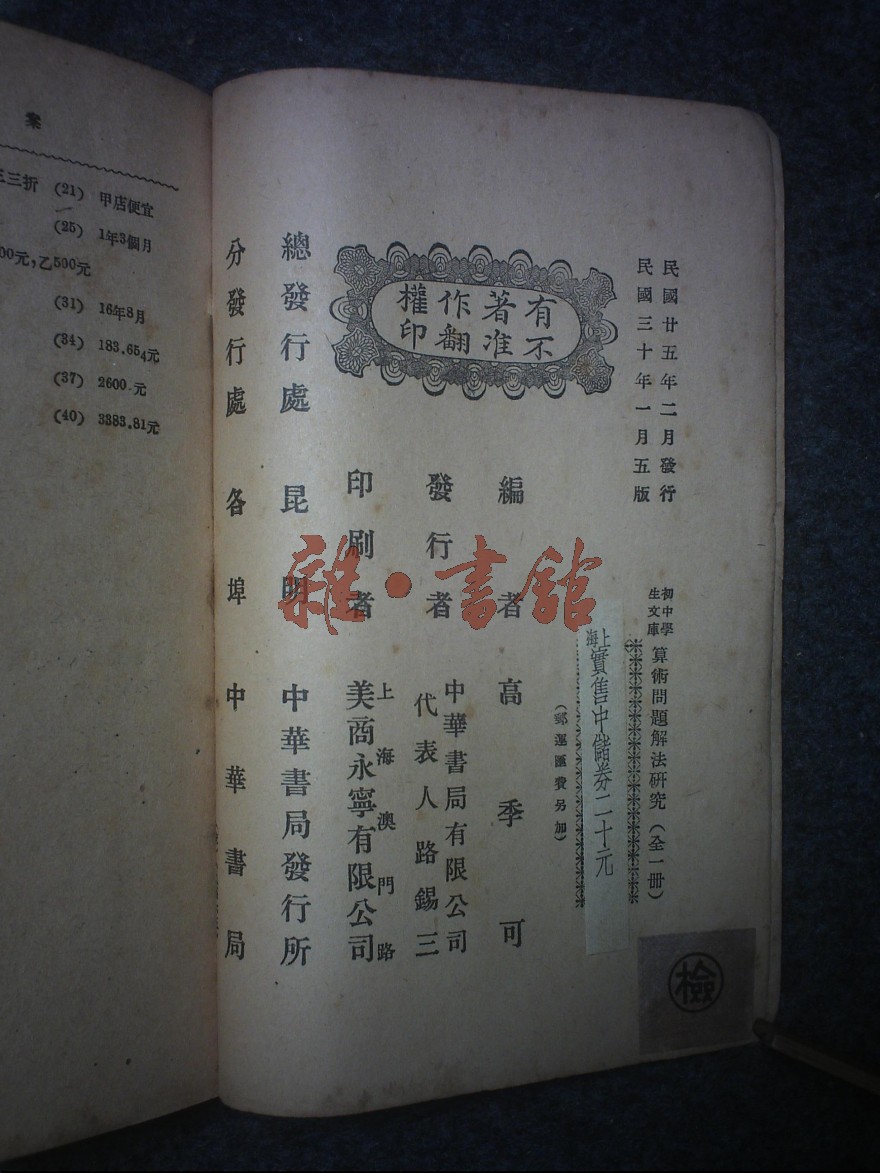 民國廿五年二月發行
民國三十年一月五版
初中學
生文庫
算術問題解法研究（全一冊）
上海
實售中儲券二十元
（郵運匯費另加）
有著作權
不准翻印
編者 高季可
發行者 中華書局有限公司
代表人 路錫三
印刷者 上海澳門路
美商永寧有限公司
總發行處 昆明 中華書局發行所
分發行處 各埠 中華書局
檢
雜·書館
案
三折 (21) 甲店便宜
(25) 1年3個月
00元,乙500元
(31) 16年8月
(34) 183.654元
(37) 2600元
(40) 3383.81元